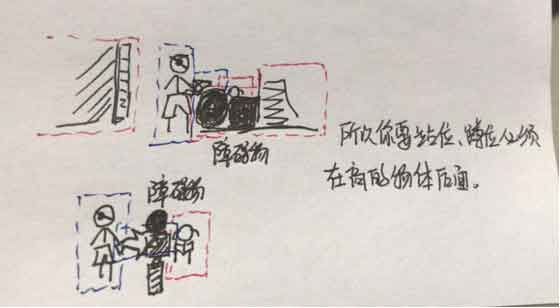 障碍物
所以你要站位、蹲位必须
在高的物体后面。
障碍物